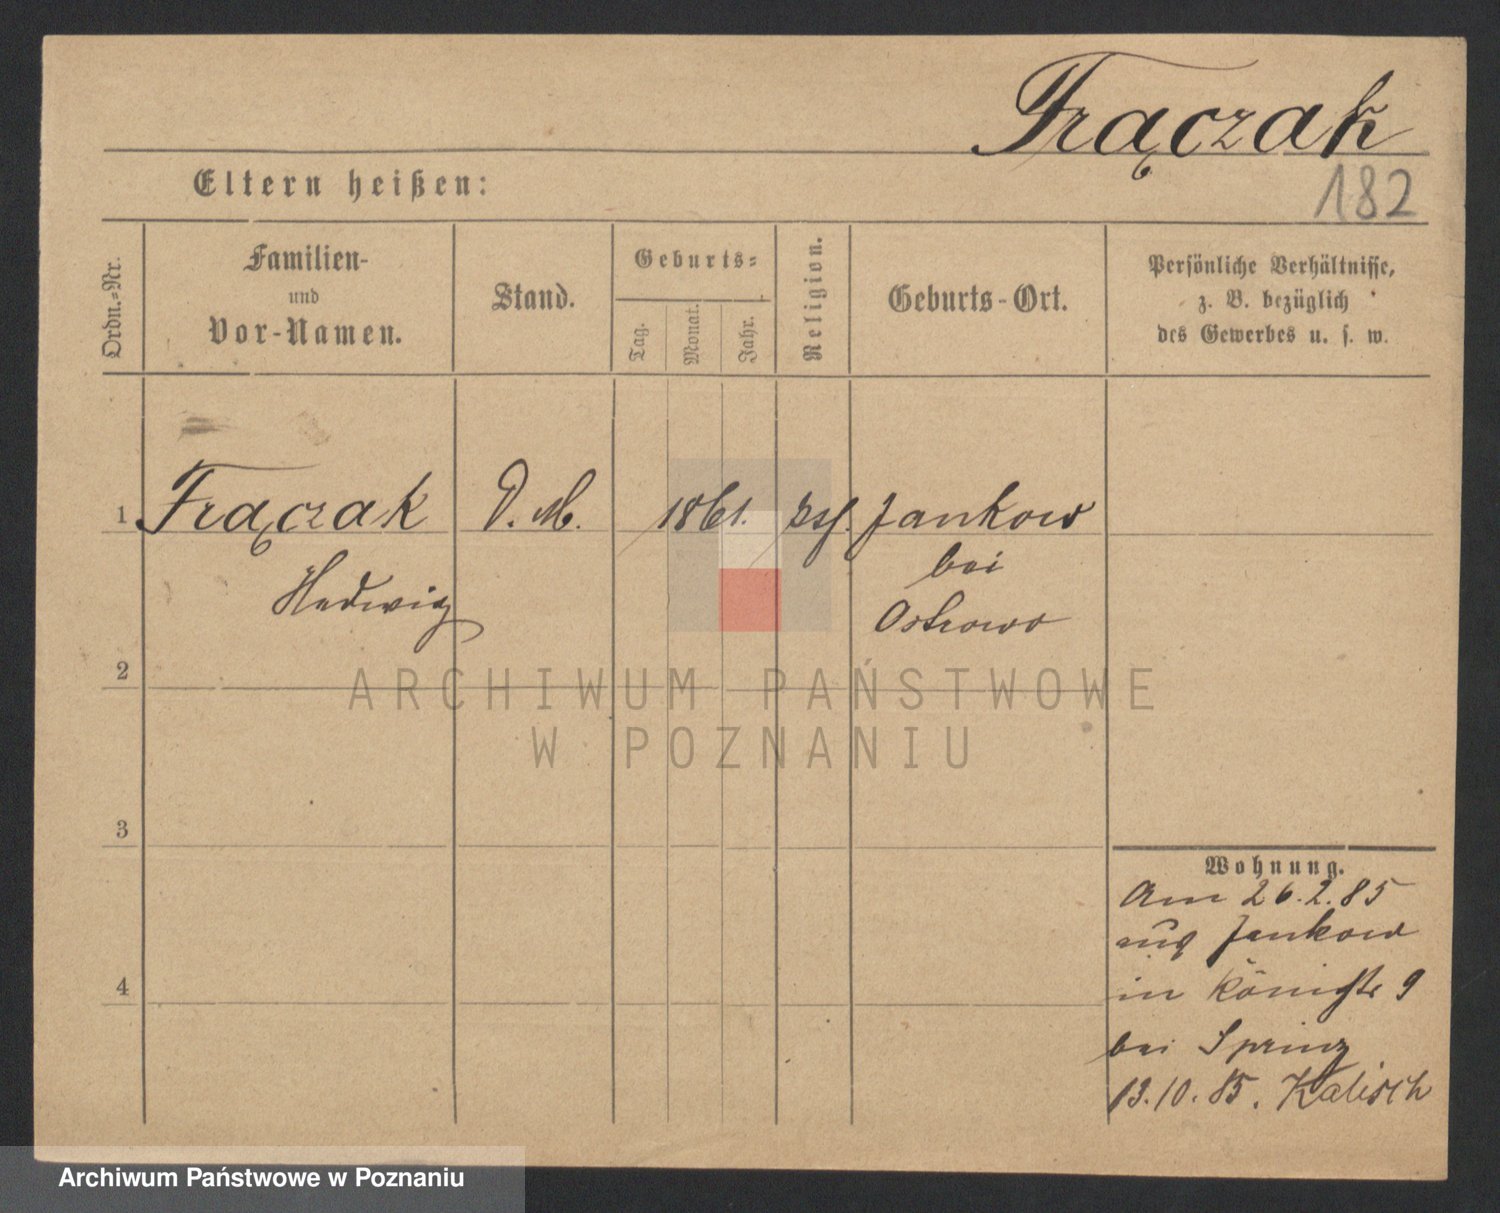 Frączak
Eltern heißen:
182
Ordn.-Nr.
Familien-
und
Vor-Namen.
Stand.
Geburts-
Tag.
Monat.
Jahr.
Religion.
Geburts-Ort.
Persönliche Verhältnisse,
z. B. bezüglich
des Gewerbes u. s. w.
1 Frączak D. M. 1861. Jankow
Hedwig bei
Ostrowo
2
ARCHIWUM PAŃSTWOWE
W POZNANIU
3
4
Wohnung.
Am 26.2.85
aus Jankow
in Königstr 9
bei Sprinz
13.10.85. Kalisch
Archiwum Państwowe w Poznaniu